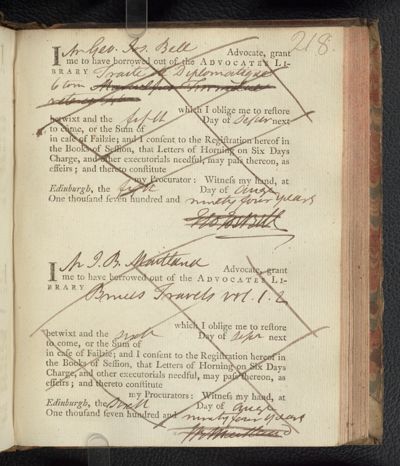 218.
I Mr Geo. Jos. Bell Advocate, grant
me to have borrowed out of the ADVOCATES LI-
BRARY Traité de Diplomatique
6 tom
which I oblige me to restore
betwixt and the fifth Day of Sepr next
to come, or the Sum of
in case of Failzie; and I consent to the Registration hereof in
the Books of Session, that Letters of Horning on Six Days
Charge, and other executorials needful, may pass thereon, as
effeirs; and thereto constitute
my Procurator: Witness my hand, at
Edinburgh, the fifth Day of Augt
One thousand seven hundred and ninety four years
Geo Jos Bell
I Mr J. B. Maitland Advocate, grant
me to have borrowed out of the ADVOCATES LI-
BRARY
Bruces Travels vol. 1. 2
which I oblige me to restore
betwixt and the sixth Day of Sepr next
to come, or the Sum of
in case of Failzie; and I consent to the Registration hereof in
the Books of Session, that Letters of Horning on Six Days
Charge, and other executorials needful, may pass thereon, as
effeirs; and thereto constitute
my Procurators: Witness my hand, at
Edinburgh, the Sixth Day of Augt
One thousand seven hundred and ninety four years